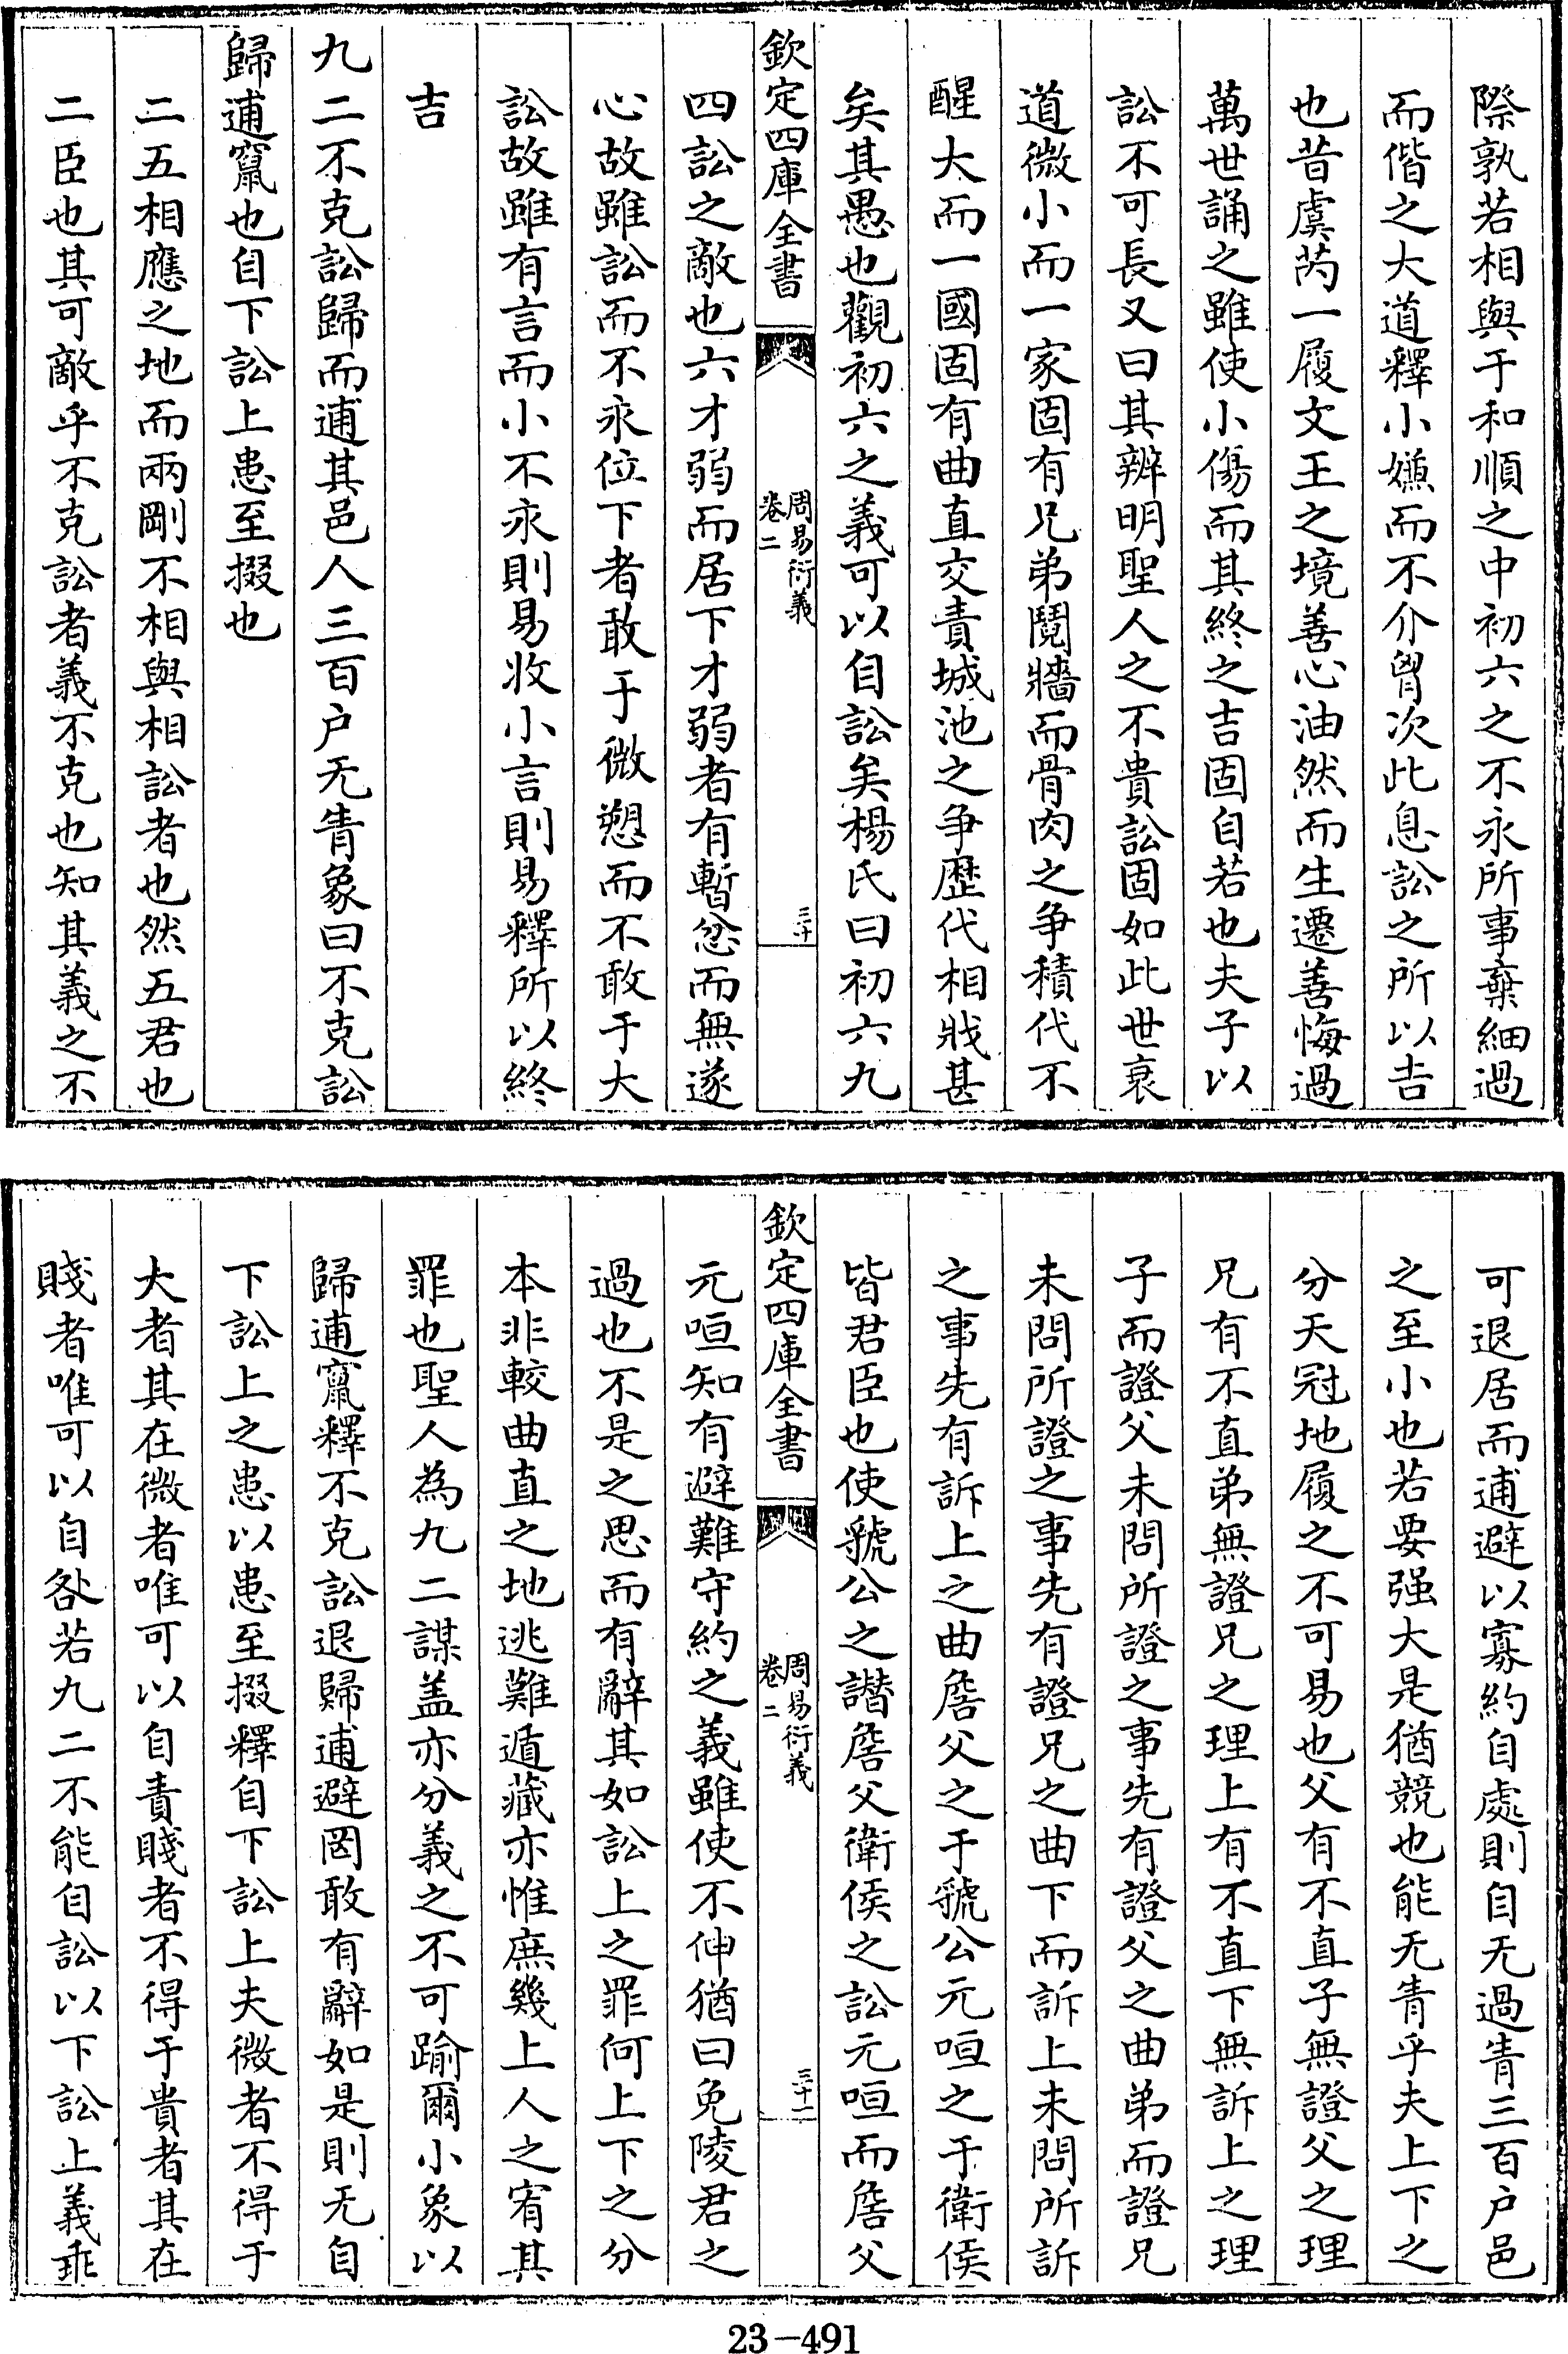 際孰若相與于和順之中初六之不永所事棄細過
而偕之大道釋小嫌而不介胷次此息訟之所以吉
也昔虞芮一履文王之境善心油然而生遷善悔過
萬世誦之雖使小傷而其終之吉固自若也夫子以
訟不可長又曰其辨明聖人之不貴訟固如此世衰
道微小而一家固有兄弟鬩牆而骨肉之争積代不
醒大而一國固有曲直交責城池之争歷代相戕甚
矣其愚也觀初六之義可以自訟矣楊氏曰初六九
欽定四庫全書
周易衍義
卷二
三十
四訟之敵也六才弱而居下才弱者有暫忿而無遂
心故雖訟而不永位下者敢于微愬而不敢于大
訟故雖有言而小不永則易收小言則易釋所以終
吉
九二不克訟歸而逋其邑人三百户无眚象曰不克訟
歸逋竄也自下訟上患至掇也
二五相應之地而兩剛不相與相訟者也然五君也
二臣也其可敵乎不克訟者義不克也知其義之不
可退居而逋避以寡約自處則自无過眚三百户邑
之至小也若要强大是猶競也能无眚乎夫上下之
分天冠地履之不可易也父有不直子無證父之理
兄有不直弟無證兄之理上有不直下無訴上之理
子而證父未問所證之事先有證父之曲弟而證兄
未問所證之事先有證兄之曲下而訴上未問所訴
之事先有訴上之曲詹父之于虢公元咺之于衛侯
皆君臣也使虢公之譖詹父衛侯之訟元咺而詹父
欽定四庫全書
周易衍義
卷二
三十一
元咺知有避難守約之義雖使不伸猶曰免陵君之
過也不是之思而有辭其如訟上之罪何上下之分
本非較曲直之地逃難遁藏亦惟庶幾上人之宥其
罪也聖人為九二謀盖亦分義之不可踰爾小象以
歸逋竄釋不克訟退歸逋避罔敢有辭如是則无自
下訟上之患以患至掇釋自下訟上夫微者不得于
大者其在微者唯可以自責賤者不得于貴者其在
賤者唯可以自咎若九二不能自訟以下訟上義乖
23-491